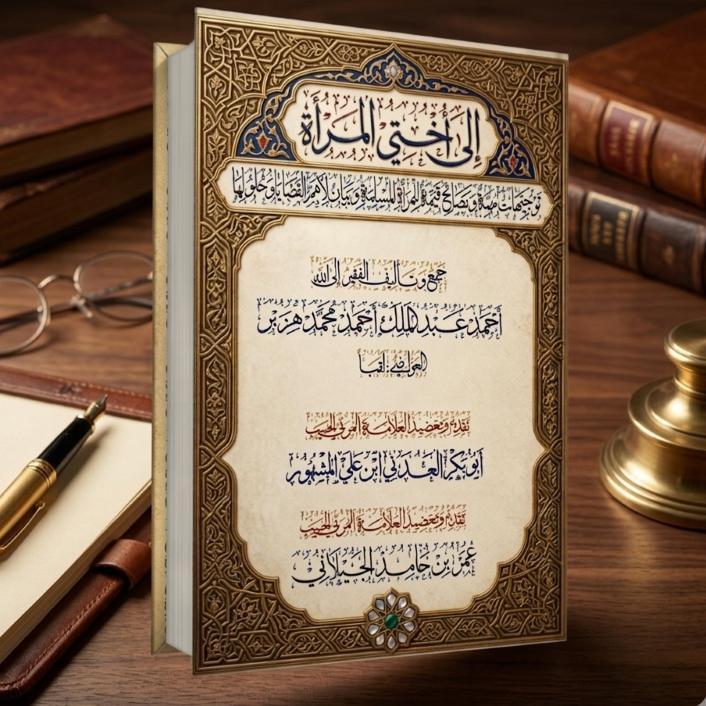 إلى أختي المرأة
توجيهات مهمة ونصائح قيمة للمرأة المسلمة وبيان لأهم القضايا وحلولها
جمع وتأليف الفقير إلى الله
أحمد عبد الملك أحمد محمد هزبر
لقبا
تقديم وتعضيد العلامة المربي الحبيب
أبوبكر العدني ابن علي المشهور
تقديم وتعضيد العلامة المربي الحبيب
عمر بن حامد الجيلاني